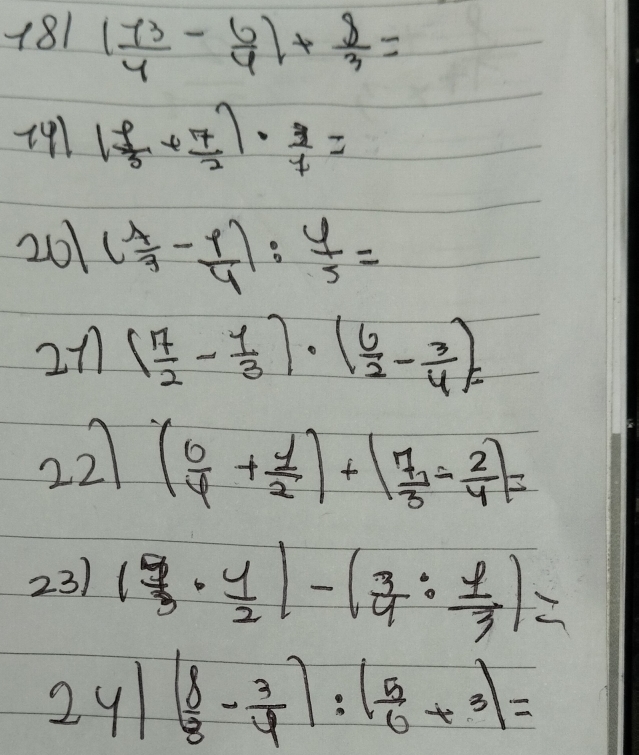 18) (13/4 - 6/4) + 8/3 =
19) (1/3 + 7/2) · 3/7 =
20) (7/3 - 1/4) : 1/5 =
21) (7/2 - 1/3) · (6/2 - 3/4) =
22) (6/4 + 1/2) + (7/3 - 2/4) =
23) ( · 1/2) - (3/4 : 1/3) =
24) (8/8 - 3/4) : (5/6 + 3) =